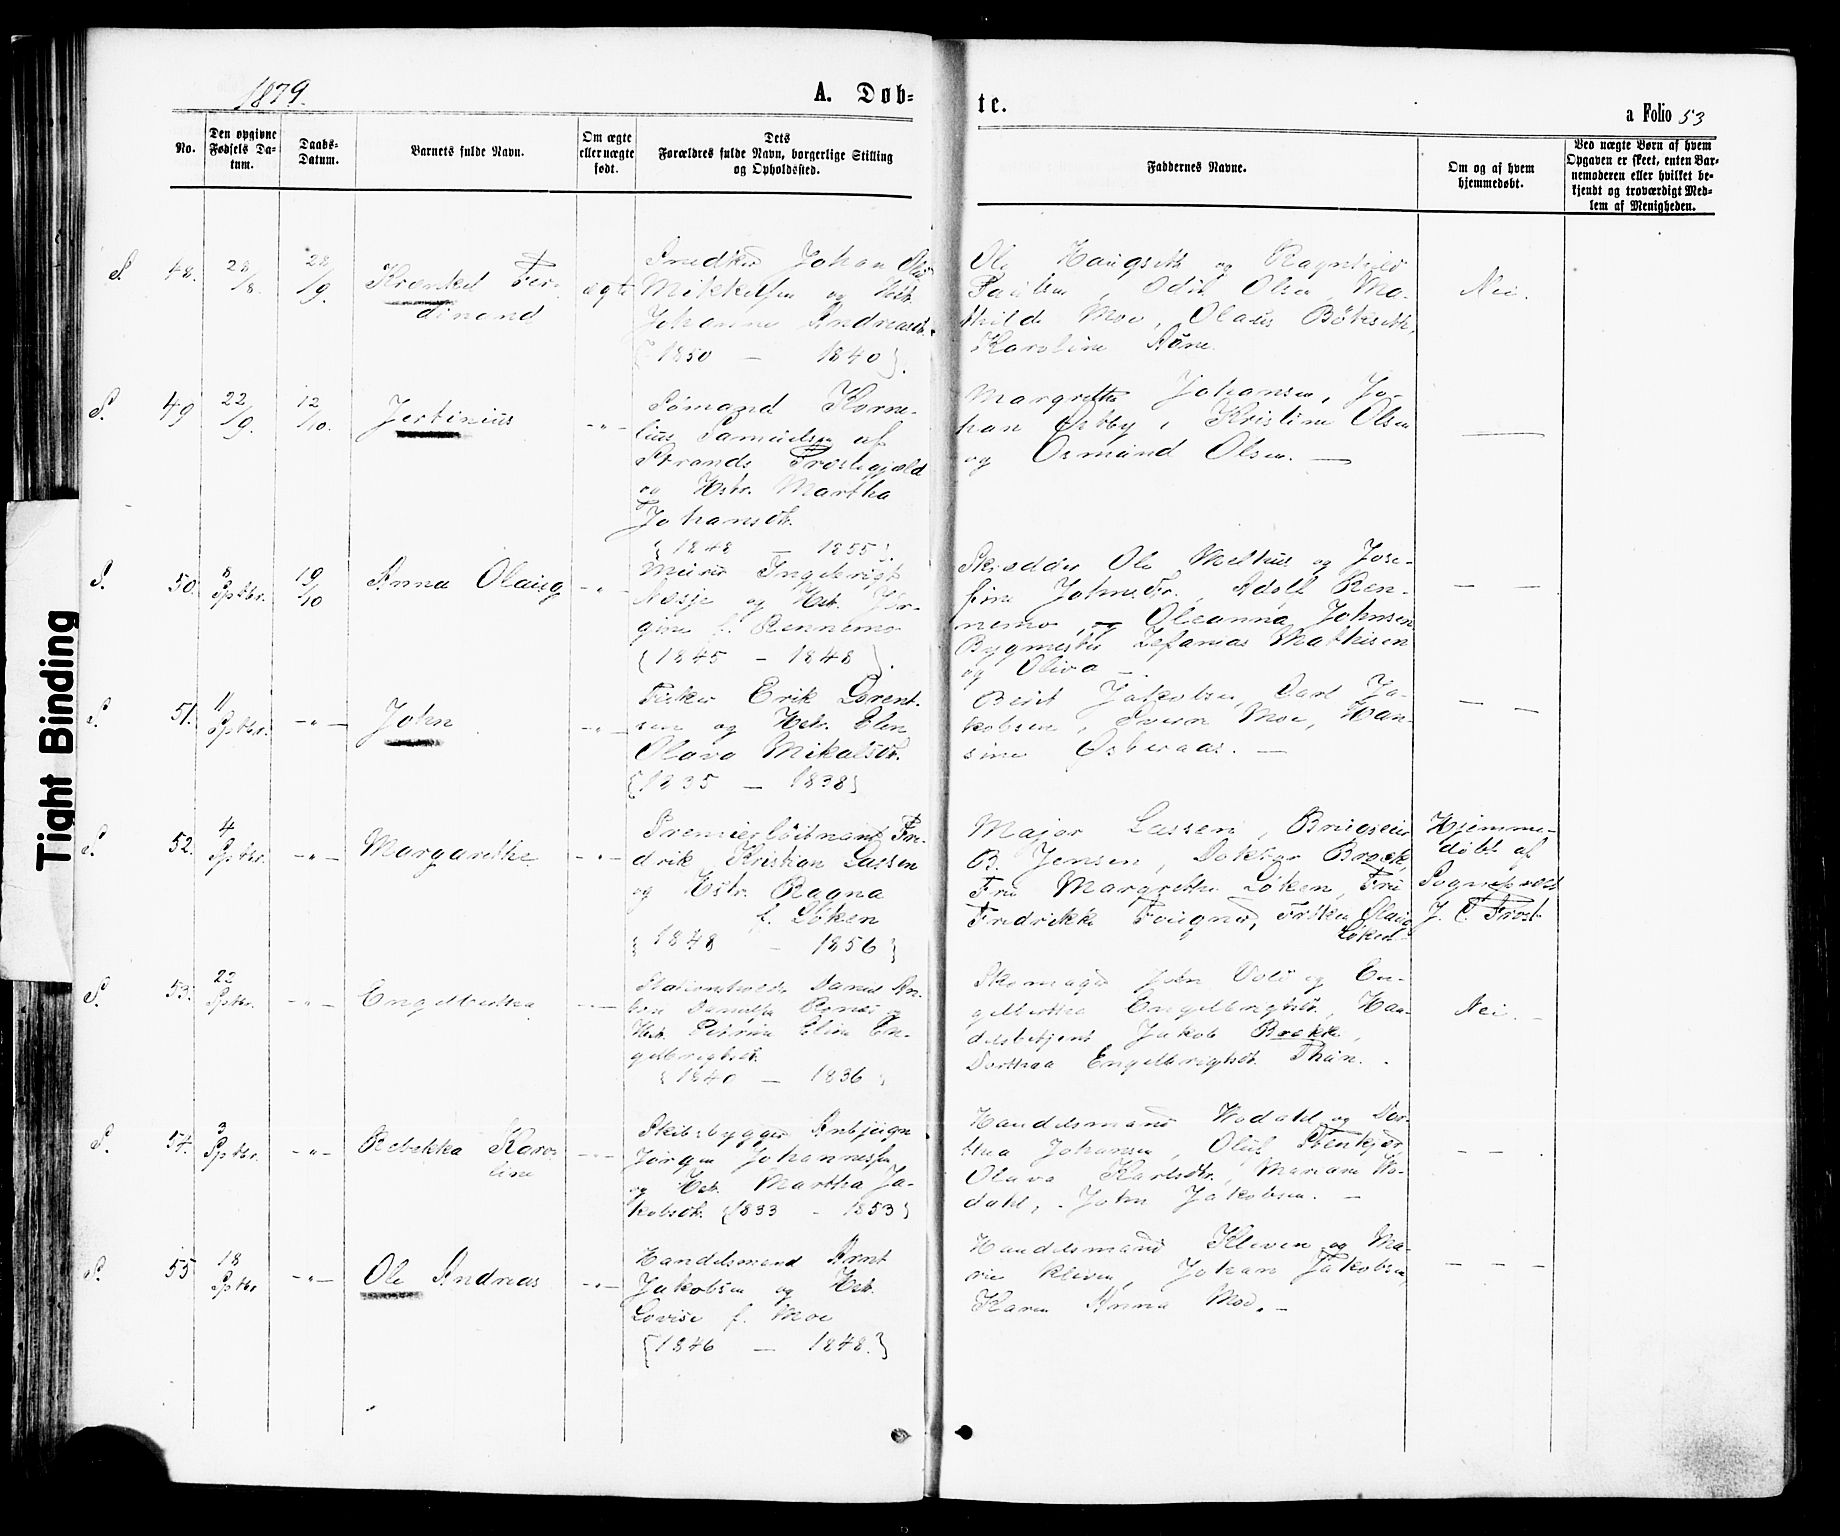 1879.
A. Døb-
te.
a Folio 53
No.
Den opgivne
Fødsels Da-
tum.
Daabs-
Datum.
Barnets fulde Navn.
Om ægte
eller uægte
født.
Dets
Forældres fulde Navn, borgerlige Stilling
og Opholdssted.
Faddernes Navne.
Om og af hvem
hjemmedøbt.
Ved uægte Børn af hvem
Opgaven er skeet, enten Bar-
nemoderen eller hvilket be-
kjendt og troværdigt Med-
lem af Menigheden.
S. 48. 28/8. 28/9. Fer-
dinand
ægte
Snedker Johan
Mikkelsen og Hstr.
Johanne Andreasdtr.
{1850 — 1840}.
Ole Haugseth og Ragnhild
Paulsen, Odil Olsen, Ma-
thilde Moe, Olaus Bökseth,
Karoline Aune.
Nei.
S. 49 22/9. 12/10. Jertinius -"-
Sømand Korne-
lius Samuelsen af
Strands Præstegjæld
og Hstr. Martha
Johansdtr.
{1848 — 1855}.
Margrethe Johansen, Jo-
han Østby, Kristine Olsen
og Osmund Olsen. —
S. 50. 8 Sptbr. 19/10 Anna Olaug -"-
Murer Ingebrigt
Næsje og Hstr. Jør-
gine f. Rennemo
{1845 - 1848}.
Skrædder Ole Melhus og Jose-
fine Johnsdtr., Adolf Ren-
nemo, og Oleanna Johnsen
Bygmester Zefanias Mathisen
og Oliva —
— —
S 51. 11 Sptbr. -"- John -"-
Fisker Erik Lorent-
sen og Hstr. Elen
Olava Mikalsdtr.
{1835 — 1838}
Berit Jakobsen, Carl Ja-
kobsen, Sverre Moe, Han-
sine Øsberaas. —
— —
S. 52. 4 Sptbr. -"- Margarethe -"-
Premierløitnant Fre-
drik Kristian Lassen
og Hstr. Ragna
f. Løken
{1848 - 1856}
Major Lassen, Brugseier
B. Jensen, Doktor Brock,
Fru Margrethe Løken, Fru
Fredrikke Fougner, Frøken Olaug
Løken.
Hjemme-
døbt af
Sognepræst
J. C. Frost
S. 53. 22 Sptbr. -"- Engelbertha -"-
Stationsholder Daniel An-
ton Danielsen og
Hstr. Petrine Elina En-
gelbrigtsdtr.
{1840 — 1836}
Skomager John Vold og En-
gelbertha Engelbrigtsdtr., Han-
delsbetjent Jakob Brekke,
Dorthea Engelbrigtsdtr. Thun.
Nei. -
S. 54. 3 Sptbr. -"- Rebekka Karo-
line -"-
Skibsbygger Anbjørn
Jørgen Johannessen
og Hstr. Martha Ja-
kobsdtr. {1833 - 1853}
Handelsmand Wodahl og Dor-
thea Johansen, Oluf Stenkjær,
Olava Karlsdtr., Mariane Wo-
dahl, John Jakobsen. —
— —
S. 55 18 Sptbr -"- Ole Andreas -"-
Handelsmand Arnt
Jakobsen og Hstr.
Lovise f. Moe
{1846 — 1848.}
Handelsmand Kleven og Ma-
rie Kleven, Johan Jakobsen
Karen Anna Moe. —
— — —
Tight Binding